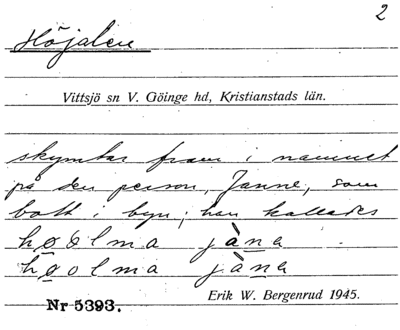 2
Höjalen
Vittsjö sn V. Göinge hd, Kristianstads län.
skymtar fram i namnet
på den person, Janne, som
bott i byn; han kallades
høølma jàna
høolma jàna
Nr 5393.
Erik W. Bergenrud 1945.